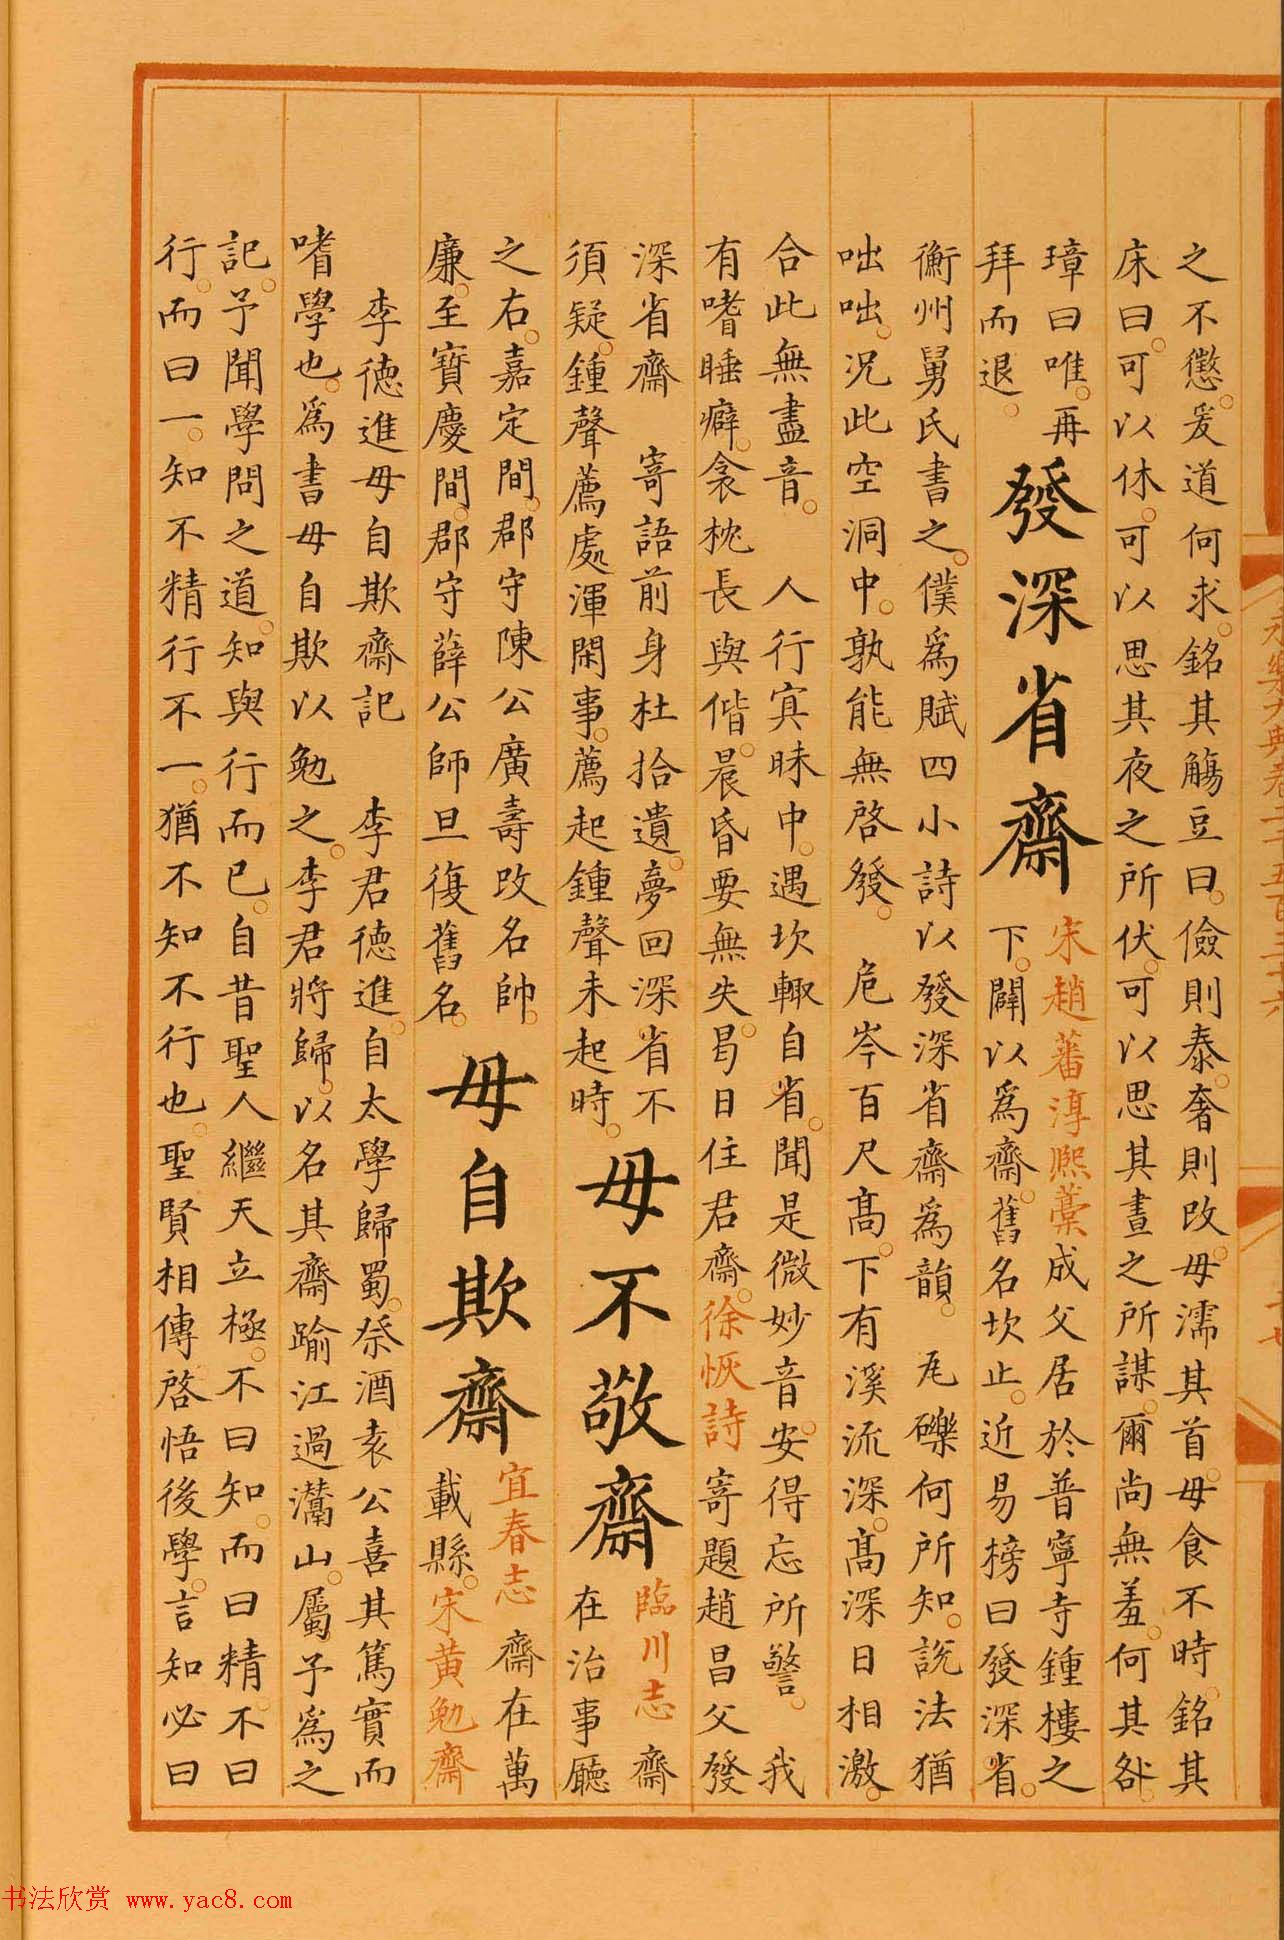 之不懲。爰道何求。銘其觴豆曰。儉則泰。奢則改。毋濡其首。毋食不時。銘其
床曰。可以休。可以思其夜之所伏。可以思其晝之所謀。爾尚無羞。何其咎。
璋曰唯。再
拜而退。
發深省齋
宋趙蕃淳熙藁成父居於普寧寺鍾樓之
下。闢以爲齋。舊名坎止。近易榜曰發深省。
衡州舅氏書之。僕爲賦四小詩以發深省齋爲韻。 瓦礫何所知。説法猶
咄咄。況此空洞中。孰能無啓發。 危岑百尺髙。下有溪流深。髙深日相激。
合此無盡音。 人行冥昧中。遇坎輙自省。聞是微妙音。安得忘所警。 我
有嗜睡癖。衾枕長與偕。晨昏要無失。曷日住君齋。徐恢詩寄題趙昌父發
深省齋 寄語前身杜拾遺。夢回深省不
須疑。鍾聲薦處渾閑事。薦起鍾聲未起時。
毋不敬齋
臨川志 齋
在治事廳
之右。嘉定間。郡守陳公廣壽改名帥。
廉。至寶慶間。郡守薛公師旦復舊名。
毋自欺齋
宜春志 齋在萬
載縣。宋黃勉齋
李德進毋自欺齋記 李君德進。自太學歸蜀。祭酒袁公喜其篤實而
嗜學也。爲書毋自欺以勉之。李君將歸。以名其齋踰江過灊山。屬予爲之
記。予聞學問之道。知與行而已。自昔聖人繼天立極。不曰知。而曰精。不曰
行。而曰一。知不精行不一。猶不知不行也。聖賢相傳啓悟後學。言知必曰
书法欣赏 www.yac8.com